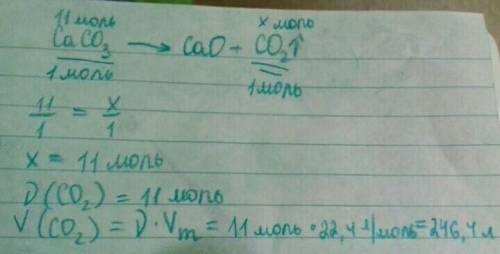 11 моль x моль
CaCO₃ → CaO + CO₂↑
1 моль 1 моль
11/1 = x/1
x = 11 моль
D(CO₂) = 11 моль
V(CO₂) = D · Vm = 11 моль · 22,4 л/моль = 246,4 л